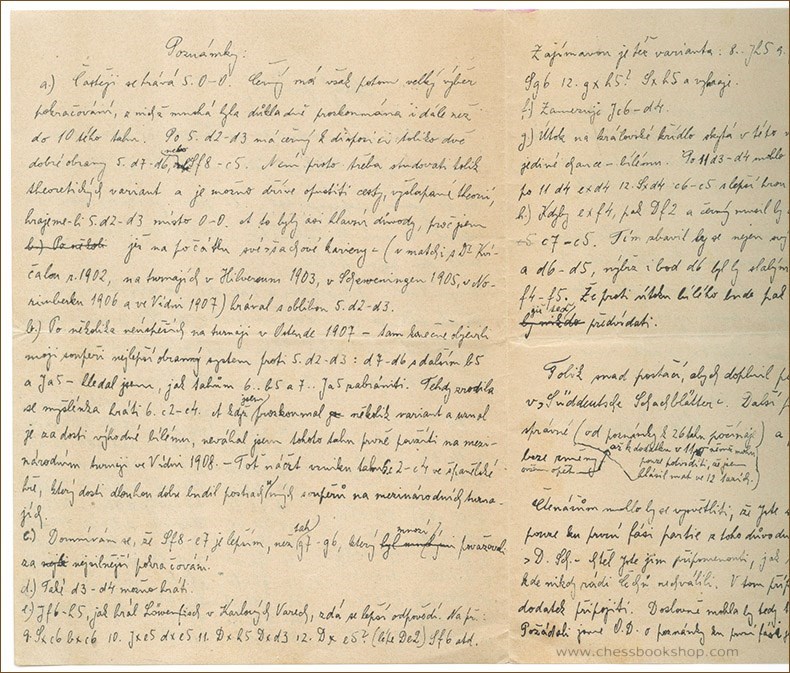 Poznámky:
a.) Častěji se hrává 5. 0-0. Černý má však potom velký výběr
pokračování, z nichž mnohá byla důkladně prozkoumána i dále než
do 10 tého tahu. Po 5. d2-d3 má černý k disposici toliko dvě
dobré obrany 5. d7-d6, nebo Sf8-c5. Není proto třeba studovati tolik
theoretických variant a je možno dříve opustiti cesty, vyšlapané theorií,
hrajeme-li 5. d2-d3 místo 0-0. A to byly asi hlavní důvody, proč jsem
již na počátku své šachové kariery - (v matchi s Dr Kvi-
čalou r. 1902, na turnajích v Hilversum 1903, v Scheveningen 1905, v No-
rimberku 1906 a ve Vídni 1907) hrával s oblibou 5. d2-d3.
b.) Po několika neúspěších na turnaji v Ostende 1907 - tam konečně objevili
moji soupeři nejlepší obranný system proti 5. d2-d3: d7-d6 s dalším b5
a Ja5 - hledal jsem, jak tahům 6.. b5 a 7.. Ja5 zabrániti. Tehdy zrodila
se myšlénka hráti 6. c2-c4. A když jsem prozkoumal několik variant a uznal
je za dosti výhodné bílému, neváhal jsem tohoto tahu prvně použíti na mezi-
národním turnaji ve Vídni 1908. - Toť nástin vzniku tahu c2-c4 ve španělské
hře, který dosti dlouhou dobu budil postrach mých soupeřů na mezinárodních turna-
jích.
c.) Domnívám se, že Sf8-e7 je lepším, než tah g7-g6, který mnozí považovali
za nejsilnější pokračování.
d.) Také d3-d4 možno hráti.
e.) Jf6-h5, jak hrál Löwenfisch v Karlových Varech, zdá se lepší odpovědí. Na př:
9. Sxc6 bxc6 10. Jxe5 dxe5 11. Dxh5 Dxd3 12. Dxe5? (lépe De2) Sf6 atd.
Zajímavou je též varianta: 8.. Jh5 9.
Sg6 12. gxh5? Sxh5 a vyhraje.
f.) Zamezuje Jc6-d4.
g.) Útok na královské křídlo skýtá v této
jediné chance - bílému. Po 11 d3-d4 mohlo
po 11 d4 exd4 12. Sxd4 c6-c5 slepší hrou
h.) Kdyby exf4, pak Df2 a černý musil by
c7-c5. Tím zbavil by se nejen
a d6-d5, nýbrž i bod d6 byl by slabým
f4-f5. Že proti útoku bílého bude pak
předvídati.
Tolik snad postačí, abych doplnil
v "Süddeutsche Schachblätter". Další
správné (od poznámky k 26 tahu počínaje) a
beze změny
Čtenářům mohlo by se vysvětliti, že jste
pouze ku první fási partie z toho důvodu
D. Sch. - chtěl jste jim připomenouti, jak
kde nikdy rádi Čechů nechválili. V tom
dodatek připojiti. Doslovně mohla by tedy
Požádali jsme O.D. o poznámky ku první fási
www.chessbookshop.com